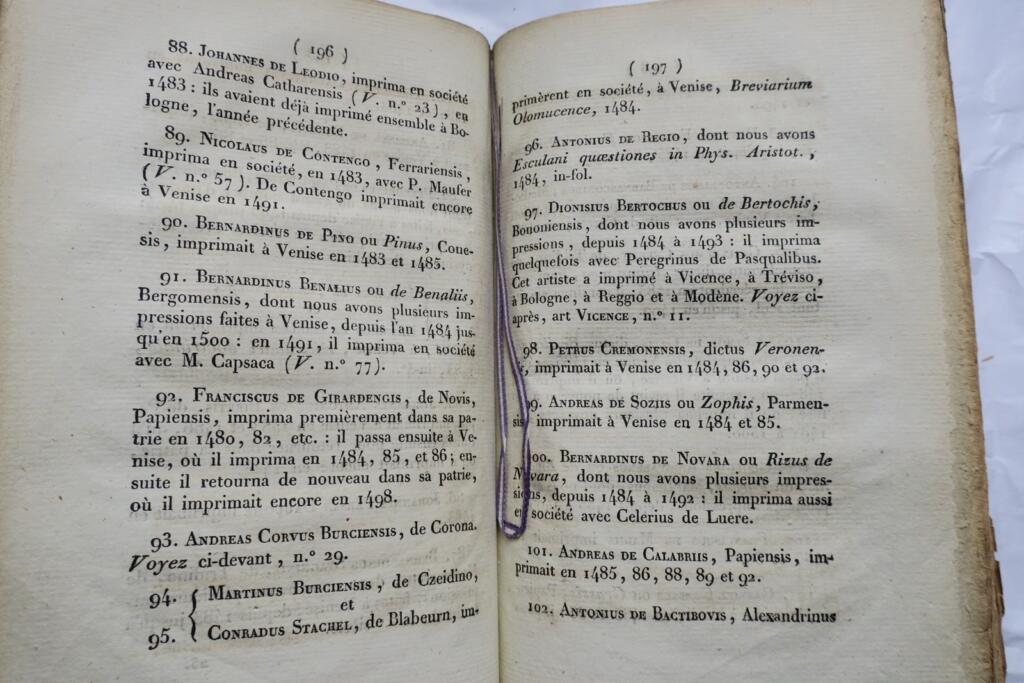 ( 196 )
88. Johannes de Leodio, imprima en société
avec Andreas Catharensis (V. n.° 23), en
1483 : ils avaient déjà imprimé ensemble à Bo-
logne, l'année précédente.
89. Nicolaus de Contengo, Ferrariensis,
imprima en société, en 1483, avec P. Maufer
(V. n.° 57). De Contengo imprimait encore
à Venise en 1491.
90. Bernardinus de Pino ou Pinus, Coue-
sis, imprimait à Venise en 1483 et 1485.
91. Bernardinus Benalius ou de Benaliis,
Bergomensis, dont nous avons plusieurs im-
pressions faites à Venise, depuis l'an 1484 jus-
qu'en 1500 : en 1491, il imprima en société
avec M. Capsaca (V. n.° 77).
92. Franciscus de Girardengis, de Novis,
Papiensis, imprima premièrement dans sa pa-
trie en 1480, 82, etc. : il passa ensuite à Ve-
nise, où il imprima en 1484, 85, et 86; en-
suite il retourna de nouveau dans sa patrie,
où il imprimait encore en 1498.
93. Andreas Corvus Burciensis, de Corona.
Voyez ci-devant, n.° 29.
94. Martinus Burciensis, de Czeidino,
et
95. Conradus Stachel, de Blabeurn, im-
( 197 )
primèrent en société, à Venise, Breviarium
Olomucence, 1484.
96. Antonius de Regio, dont nous avons
Esculani quæstiones in Phys. Aristot.,
1484, in-fol.
97. Dionisius Bertochus ou de Bertochis,
Bononiensis, dont nous avons plusieurs im-
pressions, depuis 1484 à 1493 : il imprima
quelquefois avec Peregrinus de Pasqualibus.
Cet artiste a imprimé à Vicence, à Tréviso,
à Bologne, à Reggio et à Modène. Voyez ci-
après, art Vicence, n.° 11.
98. Petrus Cremonensis, dictus Veronen-
s, imprimait à Venise en 1484, 86, 90 et 92.
99. Andreas de Soziis ou Zophis, Parmen-
sis imprimait à Venise en 1484 et 85.
100. Bernardinus de Novara ou Rizus de
Novara, dont nous avons plusieurs impres-
sions, depuis 1484 à 1492 : il imprima aussi
en société avec Celerius de Luere.
101. Andreas de Calabriis, Papiensis, im-
primait en 1485, 86, 88, 89 et 92.
102. Antonius de Bactibovis, Alexandrinus